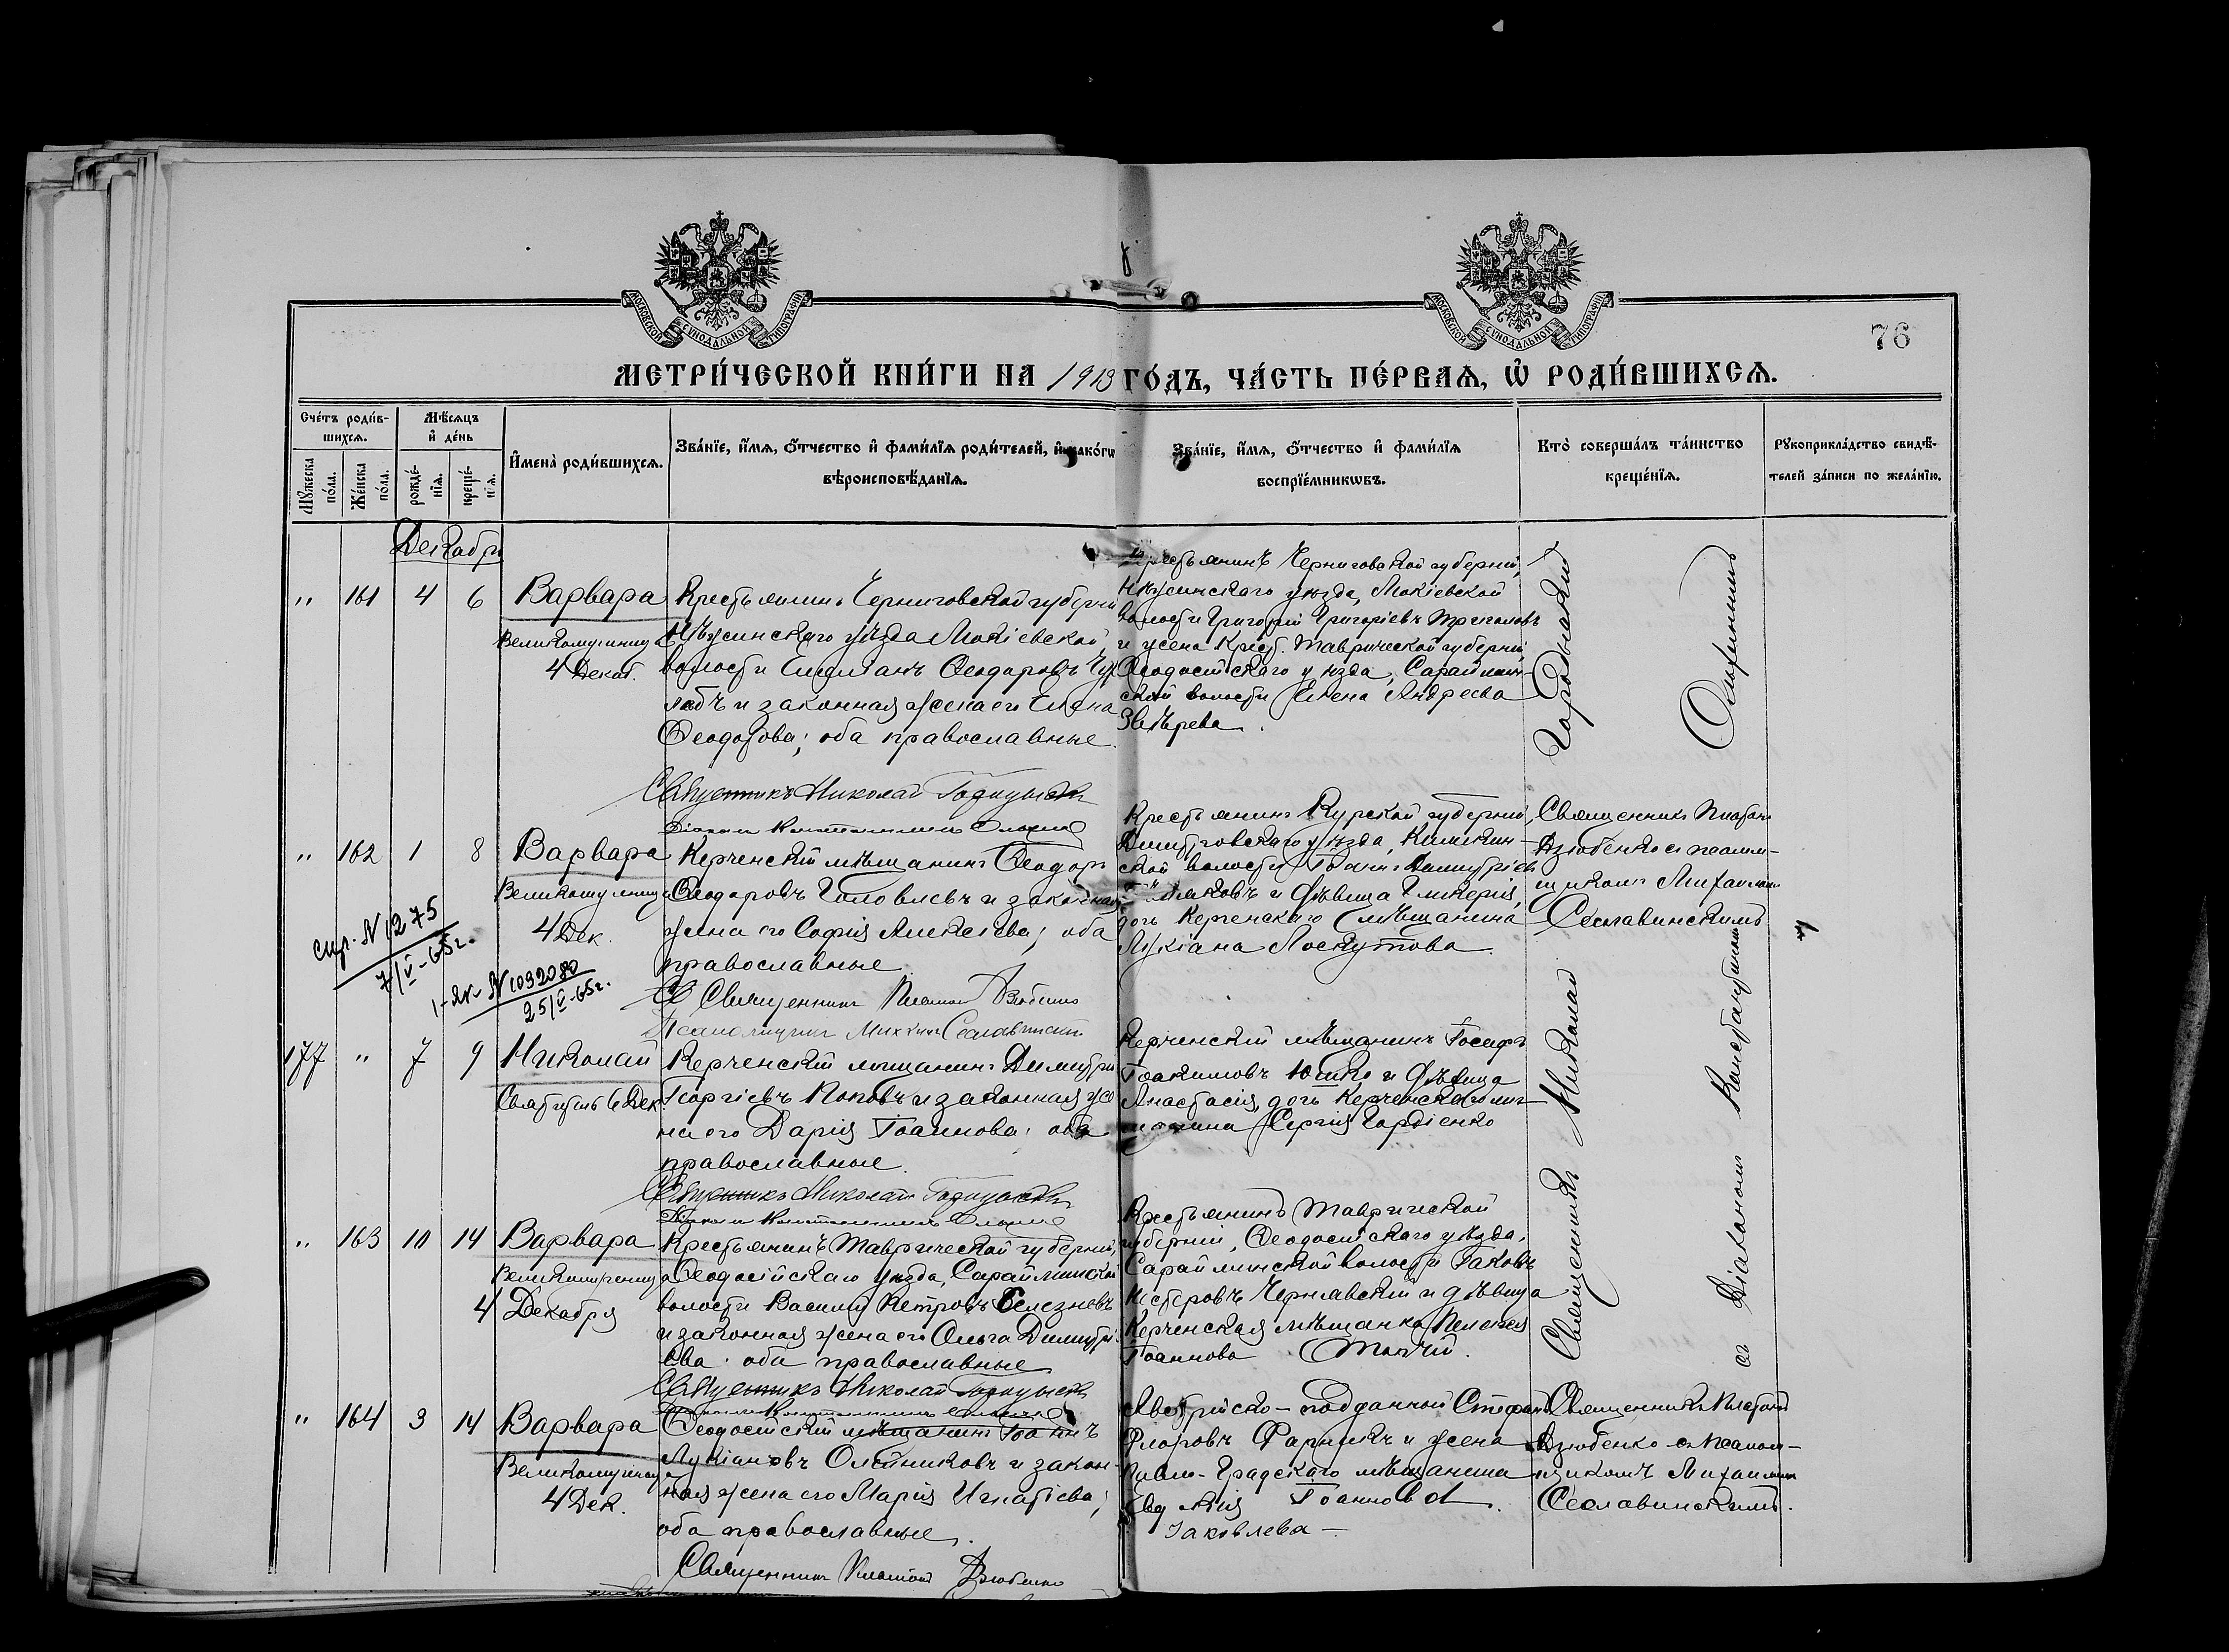 МОСКОВСКОЙ СУНОДАЛЬНОЙ ТИПОГРАФІИ
МОСКОВСКОЙ СУНОДАЛЬНОЙ ТИПОГРАФІИ
76
МЕТРИ́ЧЕСКОЙ КНИ́ГИ НА 1913 ГО́ДЪ, ЧА́СТЬ ПЕ́РВАѦ, Ѡ҆ РОДИ́ВШИХСѦ.
Сче́тъ роди́в-
шихсѧ.
Мꙋ́жеска по́ла.
Же́нска по́ла.
Мѣ́сѧцъ
и҆ де́нь
рожде́-
нїѧ.
креще́-
нїѧ.
И҆мена̀ роди́вшихсѧ.
Зва́нїе, и҆́мѧ, ѻ҆́тчество и҆ фами́лїѧ роди́телей, и҆ како́гѡ
вѣроисповѣ́данїѧ.
Зва́нїе, и҆́мѧ, ѻ҆́тчество и҆ фами́лїѧ
воспрїе́мникѡвъ.
Кто̀ соверша́лъ та́инство
креще́нїѧ.
Рꙋкоприкла́дство свидѣ́-
телей за́писи по жела́нїю.
Декабрь
" 161 4 6 Варвара
Великомученица
4 Декаб.
Крестьянинъ Черниговской губерніи
Нѣжинскаго уѣзда Мокіевской
волости Емиліанъ Ѳеодоровъ
и законная жена его Елена
Ѳеодорова; оба православные.
Крестьянинъ Черниговской губерніи,
Нѣжинскаго уѣзда, Мокіевской
волости Григорій Григоріевъ
и жена Крест. Таврической губерніи
Ѳеодосійскаго уѣзда, Сараймин-
ской волости Елена Андреева
Звѣрева.
Священникъ Николай
" 162 1 8 Варвара
Великомученица
4 Дек.
Керченскій мѣщанинъ Ѳеодоръ
Ѳеодоровъ Головлевъ и законная
жена его Софія Алексіева; оба
православные
Священникъ Платонъ Дзюбенко
Псаломщикъ Михаилъ Сеславинскій
Крестьянинъ Курской губерніи,
Дмитровскаго уѣзда,
ской волости Іоаннъ Димитріевъ
и дѣвица Гликерія,
дочь Керченскаго мѣщанина
Лукіана Лоскутова.
Священникъ Платонъ
Дзюбенко съ псалом-
щикомъ Михаиломъ
Сеславинскимъ
спр. N 1275
7/V-65г.
1-ЯК N 1092080
25/V-65г.
177 " 7 9 Николай
Святитель 6 Дек.
Керченскій мѣщанинъ Димитрій
Георгіевъ Поповъ и законная же
на его Дарія Іоаннова; оба
православные.
Керченскій мѣщанинъ Іосифъ
Іоакимовъ Юшко и дѣвица
Анастасія, дочь Керченскаго мѣ-
щанина Сергія Гордіенко
Священникъ Николай
" 163 10 14 Варвара
Великомученица
4 Декабря
Крестьянинъ Таврической губерніи,
Ѳеодосійскаго уѣзда, Сарайминской
волости Василій Петровъ Селезневъ
и законная жена его Ольга Димитрі-
ева; оба православные
Крестьянинъ Таврической
губерніи, Ѳеодосійскаго уѣзда,
Сарайминской волости Іаковъ
Несторовъ Чернявскій и дѣвица
Керченская мѣщанка Пелагея
Іоаннова
Священникъ Николай
съ Діакономъ Константиномъ
" 164 3 14 Варвара
Великомученица
4 Дек.
Ѳеодосійскій мѣщанинъ Іоаннъ
Лукіановъ Олейниковъ и закон-
ная жена его Марія Игнатіева;
оба православные.
Священникъ Платонъ Дзюбенко
Австрійско-подданный Стефанъ
Флоровъ и жена
Павло-Градскаго мѣщанина
Евдокія Іоаннова
Іаковлева —
Священникъ Платонъ
Дзюбенко съ псалом-
щикомъ Михаиломъ
Сеславинскимъ.